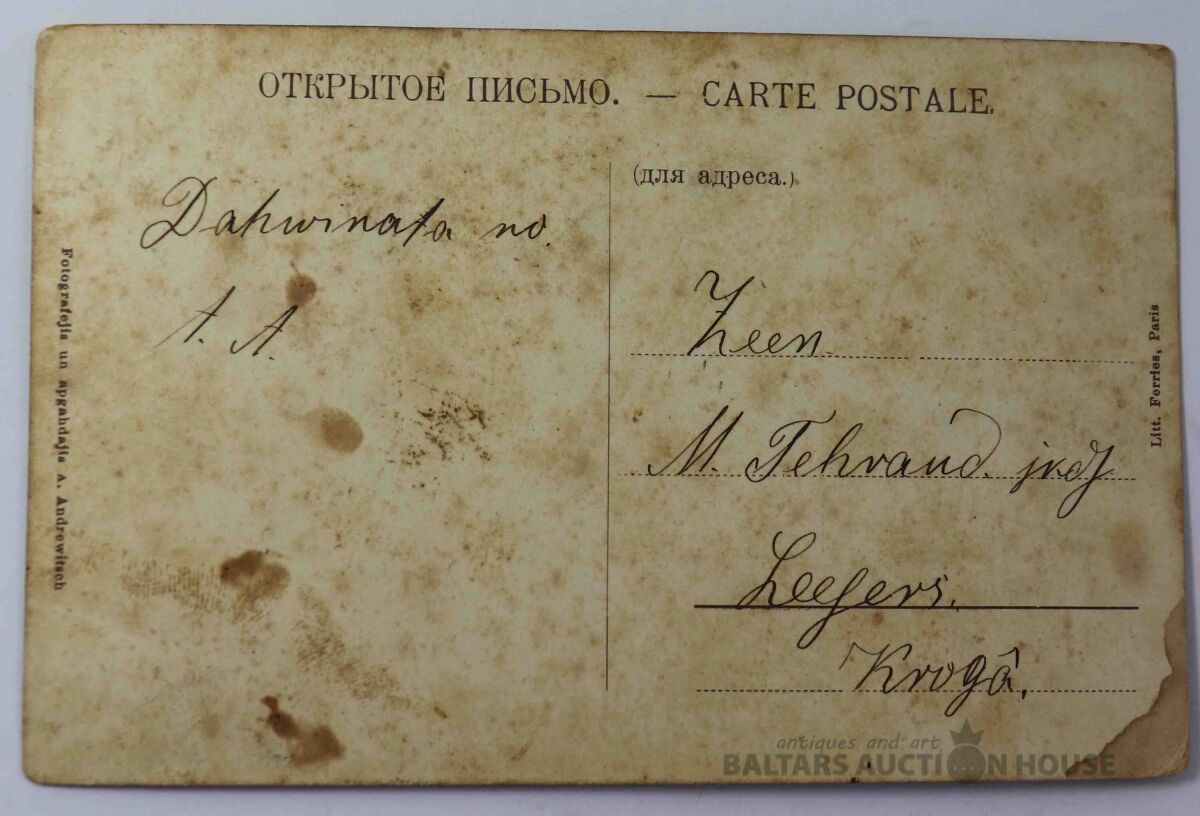 ОТКРЫТОЕ ПИСЬМО. — CARTE POSTALE.
Dahwinata no.
A. A.
Fotografejis un apgahdajis A. Andrewitsch
(для адреса.)
Zeen.
M. Tehraud.
Leegers.
Krogâ.
Litt. Ferries, Paris
antiques and art
BALTARS AUCTION HOUSE